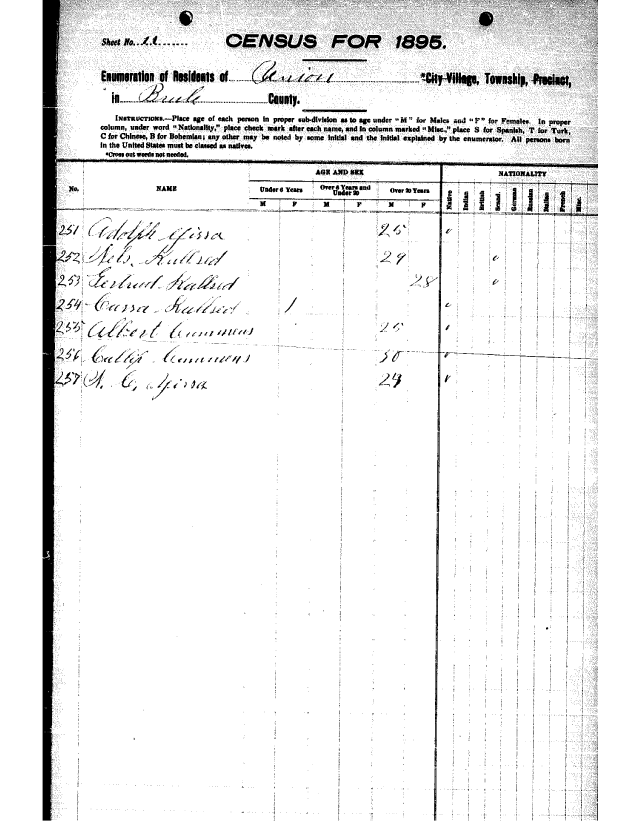 Sheet No. 22
CENSUS FOR 1895.
Enumeration of Residents of Union *City Village, Township, Precinct,
in Brule County.
INSTRUCTIONS.—Place age of each person in proper sub-division as to age under "M" for Males and "F" for Females. In proper
column, under word "Nationality," place check mark after each name, and in column marked "Misc.," place S for Spanish, T for Turk,
C for Chinese, B for Bohemian; any other may be noted by some initial and the initial explained by the enumerator. All persons born
in the United States must be classed as natives.
*Cross out words not needed.
No. NAME AGE AND SEX NATIONALITY
Under 6 Years Over 6 Years and Under 20 Over 20 Years
M F M F M F Native Indian British Scand. German Russian Italian French Misc.
251 Adolph 25
252 Nels Kullred 29
253 Gertrud Kullred 28
254 Kullred 1
255 Albert 25
256 30
257 29